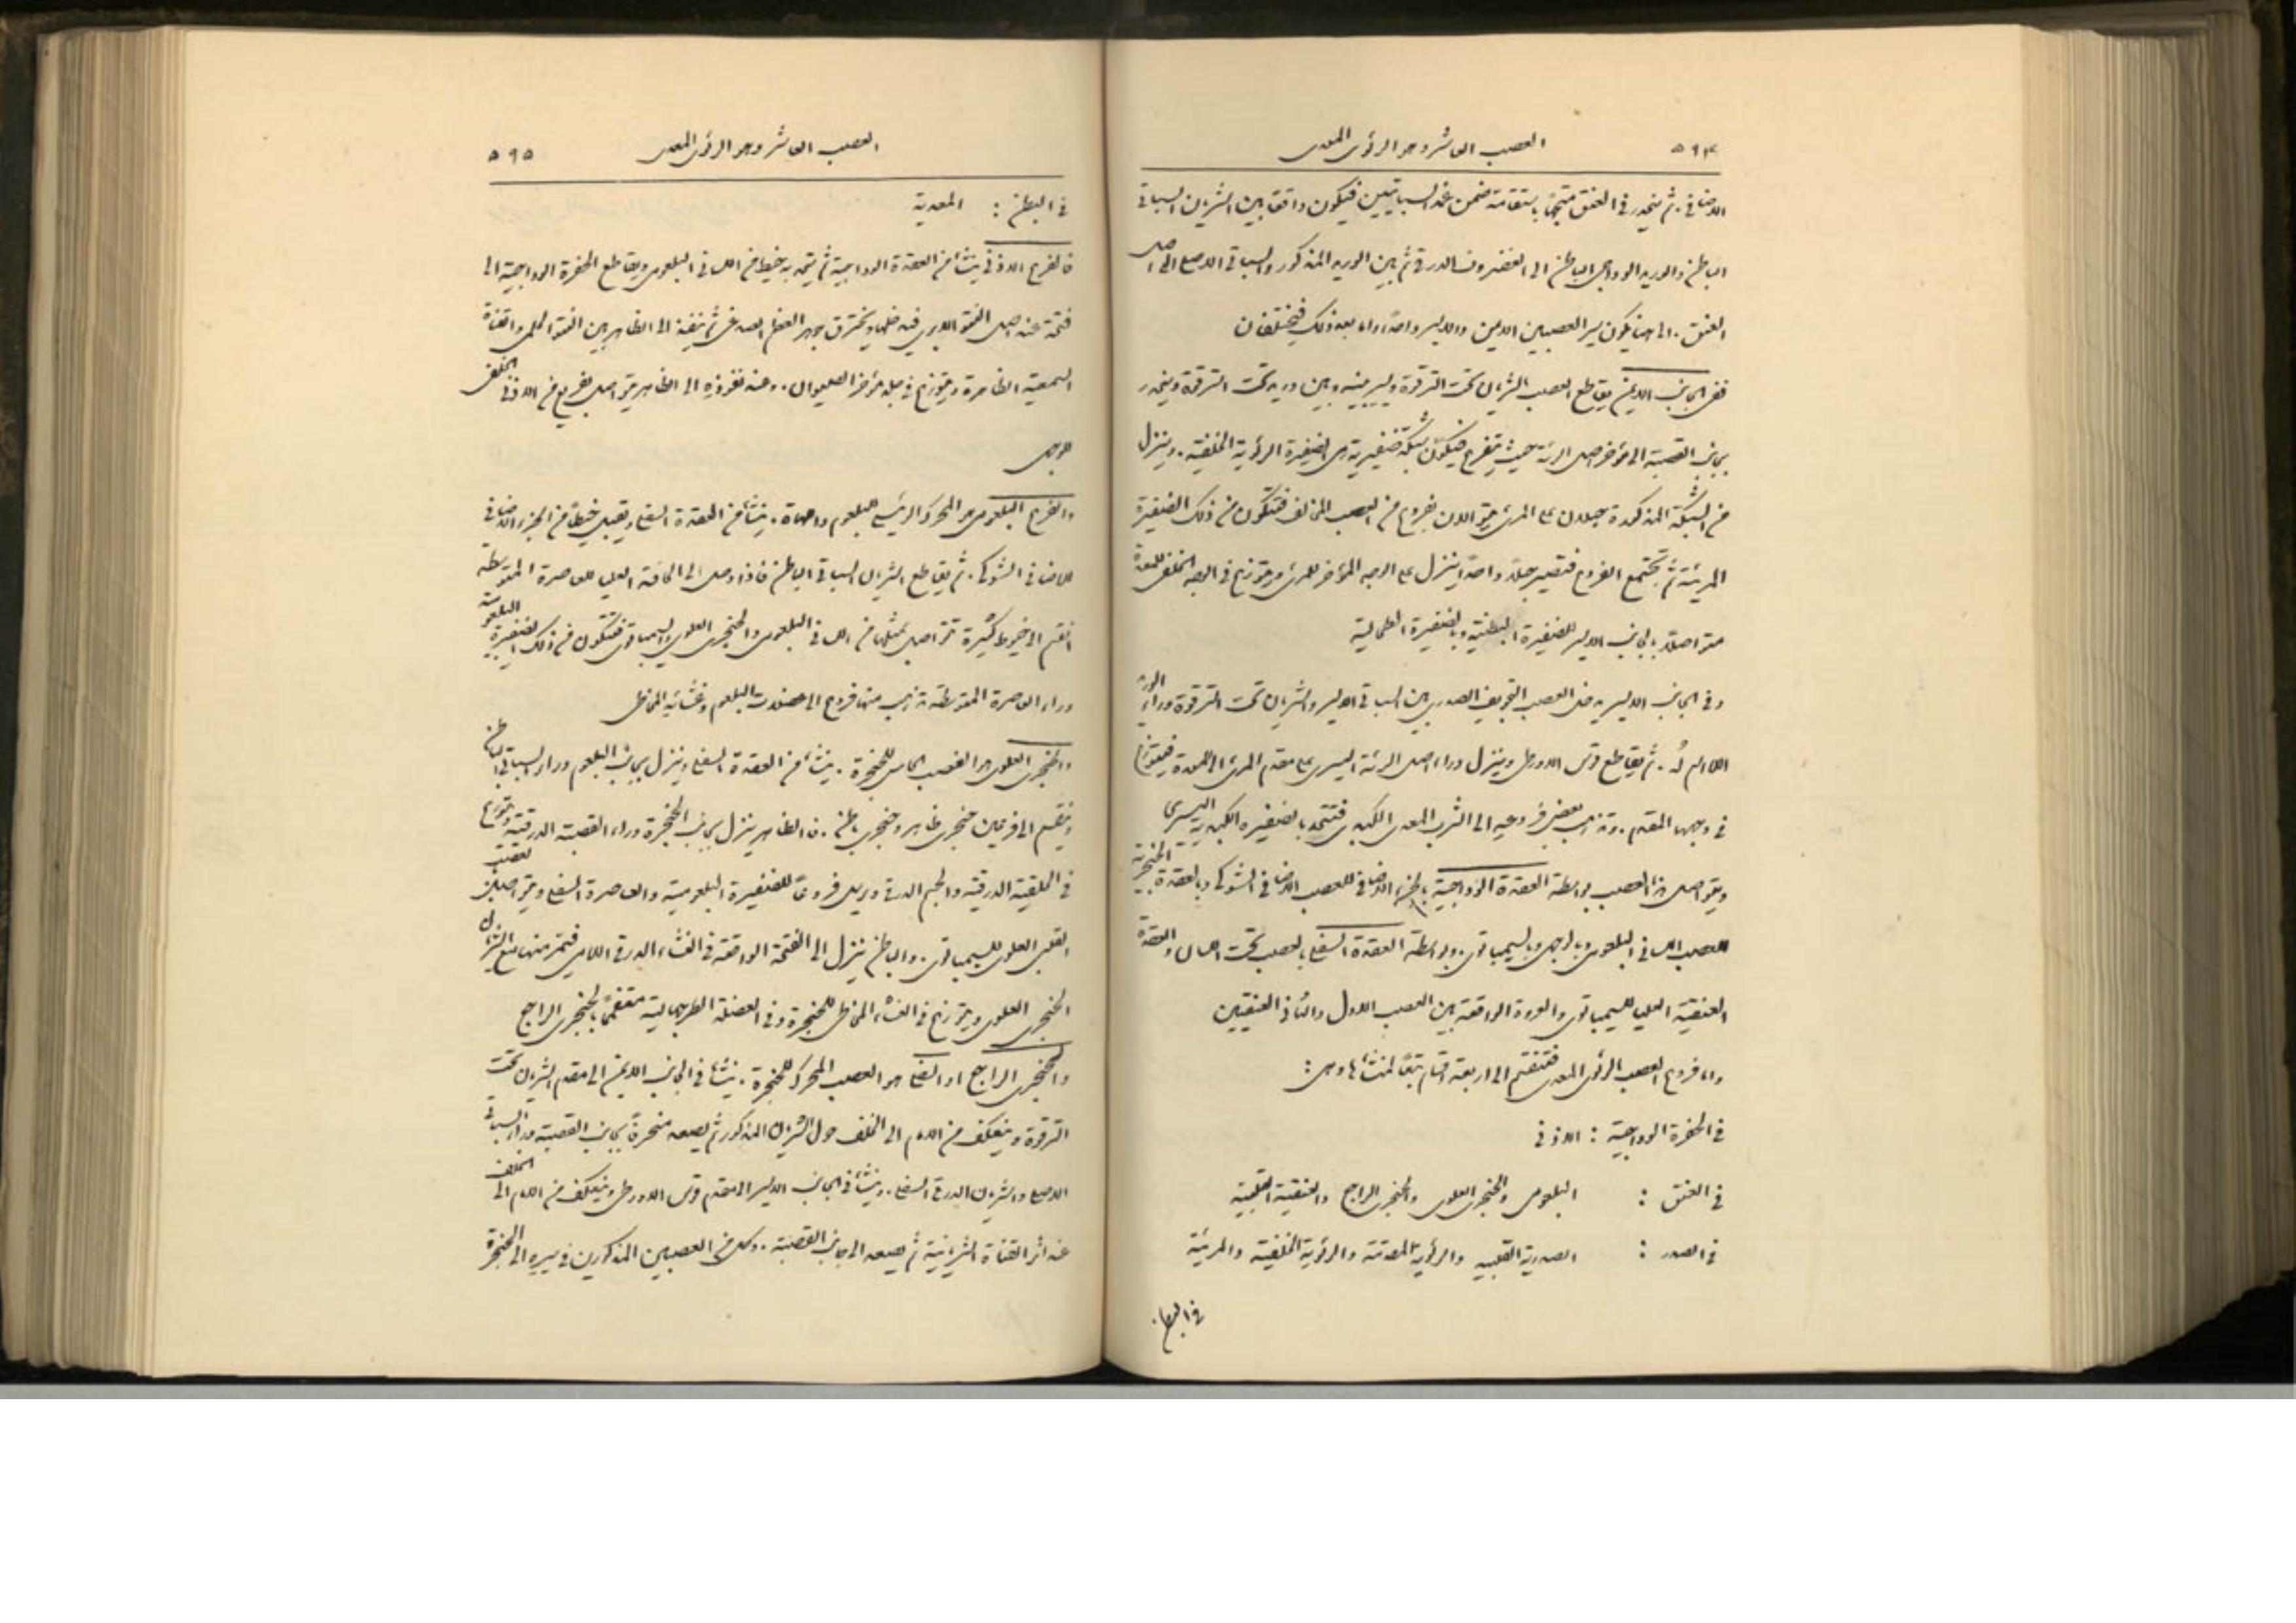 ٥٩٤ العصب العاشر وهو الرئوي المعدي
الاضافي. ثم ينحدر في العنق متجهًا باستقامة ضمن غمد السباتيين فيكون واقعًا بين الشريان السباتي
الباطن والوريد الودجي الباطن الى الغضروف الدرقي ثم بين الوريد المذكور والسباتي الاصلي الى اصل
العنق. الى هنا يكون سير العصبين الايمن والايسر واحدًا واما بعد ذلك فيختلفان
ففي الجانب الايمن يقاطع العصب الشريان تحت الترقوة ويسير بينه وبين وريد تحت الترقوة وينحدر
بجانب القصبة الى مؤخر اصل الرئة حيث يتفرع فيكوّن شبكة ضفيرية هي الضفيرة الرئوية الخلفية. وينزل
من الشبكة المذكورة حبلان على المريء يتواصلان بفروع من العصب المخالف فتتكون من ذلك الضفيرة
المريئية ثم تجتمع الفروع فتصير حبلًا واحدًا ينزل على الوجه المؤخر للمريء ويتوزع في الوجه الخلفي للمعدة
متواصلًا بالجانب الايسر للضفيرة البطنية وبالضفيرة الطحالية
وفي الجانب الايسر يدخل العصب التجويف الصدري بين السباتي الايسر والشريان تحت الترقوة وراء الوريد
اللا اسم له. ثم يقاطع قوس الاورطي وينزل وراء اصل الرئة اليسرى على مقدم المريء الى المعدة فيتوزع
في وجهها المقدم. وتذهب بعض فروعه الى الثرب المعدي الكبدي فتتحد بالضفيرة الكبدية اليسرى
ويتواصل هذا العصب بواسطة العقدة الودجية بالجزء الاضافي للعصب الاضافي الشوكي وبالعقدة الحجرية
للعصب اللساني البلعومي وبالوجهي وبالسيمباتوي. وبواسطة العقدة السفلى بالعصب تحت اللسان والعقدة
العنقية العليا للسيمباتوي والعروة الواقعة بين العصب الاول والثاني العنقيين
واما فروع العصب الرئوي المعدي فتنقسم الى اربعة اقسام تبعًا لمنشأها وهي:
في الحفرة الودجية : الاذني
في العنق : البلعومي والحنجري العلوي والحنجري الراجع والعنقية القلبية
في الصدر : الصدرية القلبية والرئوية المقدمة والرئوية الخلفية والمريئية
في البطن
العصب العاشر وهو الرئوي المعدي ٥٩٥
في البطن : المعدية
فالفرع الاذني ينشأ من العقدة الودجية ثم يتحد به خيط من اللساني البلعومي ويقاطع الحفرة الودجية الى
فتحة عند اصل النتوء الابري فيدخلها ويخترق جوهر العظم الصدغي ثم ينفذ الى الظاهر بين النتوء الحلمي والقناة
السمعية الظاهرة ويتوزع في جلد مؤخر الصيوان. وعند نفوذه الى الظاهر يتواصل بفريع من الاذني الخلفي
للوجهي
والفرع البلعومي هو المحرك الرئيسي للبلعوم واللهاة. ينشأ من العقدة السفلى ويقبل خيطًا من الجزء الاضافي
للاضافي الشوكي. ثم يقاطع الشريان السباتي الباطن فاذا وصل الى الحافة العليا للعاصرة المتوسطة
انقسم الى خيوط كثيرة تتواصل بمثلها من اللساني البلعومي والحنجري العلوي والسيمباتوي فتتكون من ذلك الضفيرة البلعومية
وراء العاصرة المتوسطة تذهب منها فروع الى عضلات البلعوم وغشائه المخاطي
والحنجري العلوي هو العصب الحاس للحنجرة. ينشأ من العقدة السفلى وينزل بجانب البلعوم وراء السباتي الباطن
وينقسم الى فرعين حنجري ظاهر وحنجري باطن. فالظاهر ينزل بجانب الحنجرة وراء القصبة الدرقية ويتوزع
في الحلقية الدرقية والجسم الدرقي ويرسل فروعًا للضفيرة البلعومية والعاصرة السفلى ويتواصل بالعصب
القلبي العلوي للسيمباتوي. والباطن ينزل الى الفتحة الواقعة في الغشاء الدرقي اللامي فيمر منها مع الشريان
الحنجري العلوي ويتوزع في الغشاء المخاطي للحنجرة وفي العضلة الطرجهالية متفممًا بالحنجري الراجع
والحنجري الراجع او السفلي هو العصب المحرك للحنجرة. ينشأ في الجانب الايمن الى مقدم الشريان تحت
الترقوة وينعكف من الامام الى الخلف حول الشريان المذكور ثم يصعد منحرفًا بجانب القصبة وراء السباتي
الاصلي والشريان الدرقي السفلي. وينشأ في الجانب الايسر الى مقدم قوس الاورطي وينعكف من الامام الى الخلف
عند اثر القناة الشريانية ثم يصعد الى جانب القصبة. وكل من العصبين المذكورين في سيره الى الحنجرة